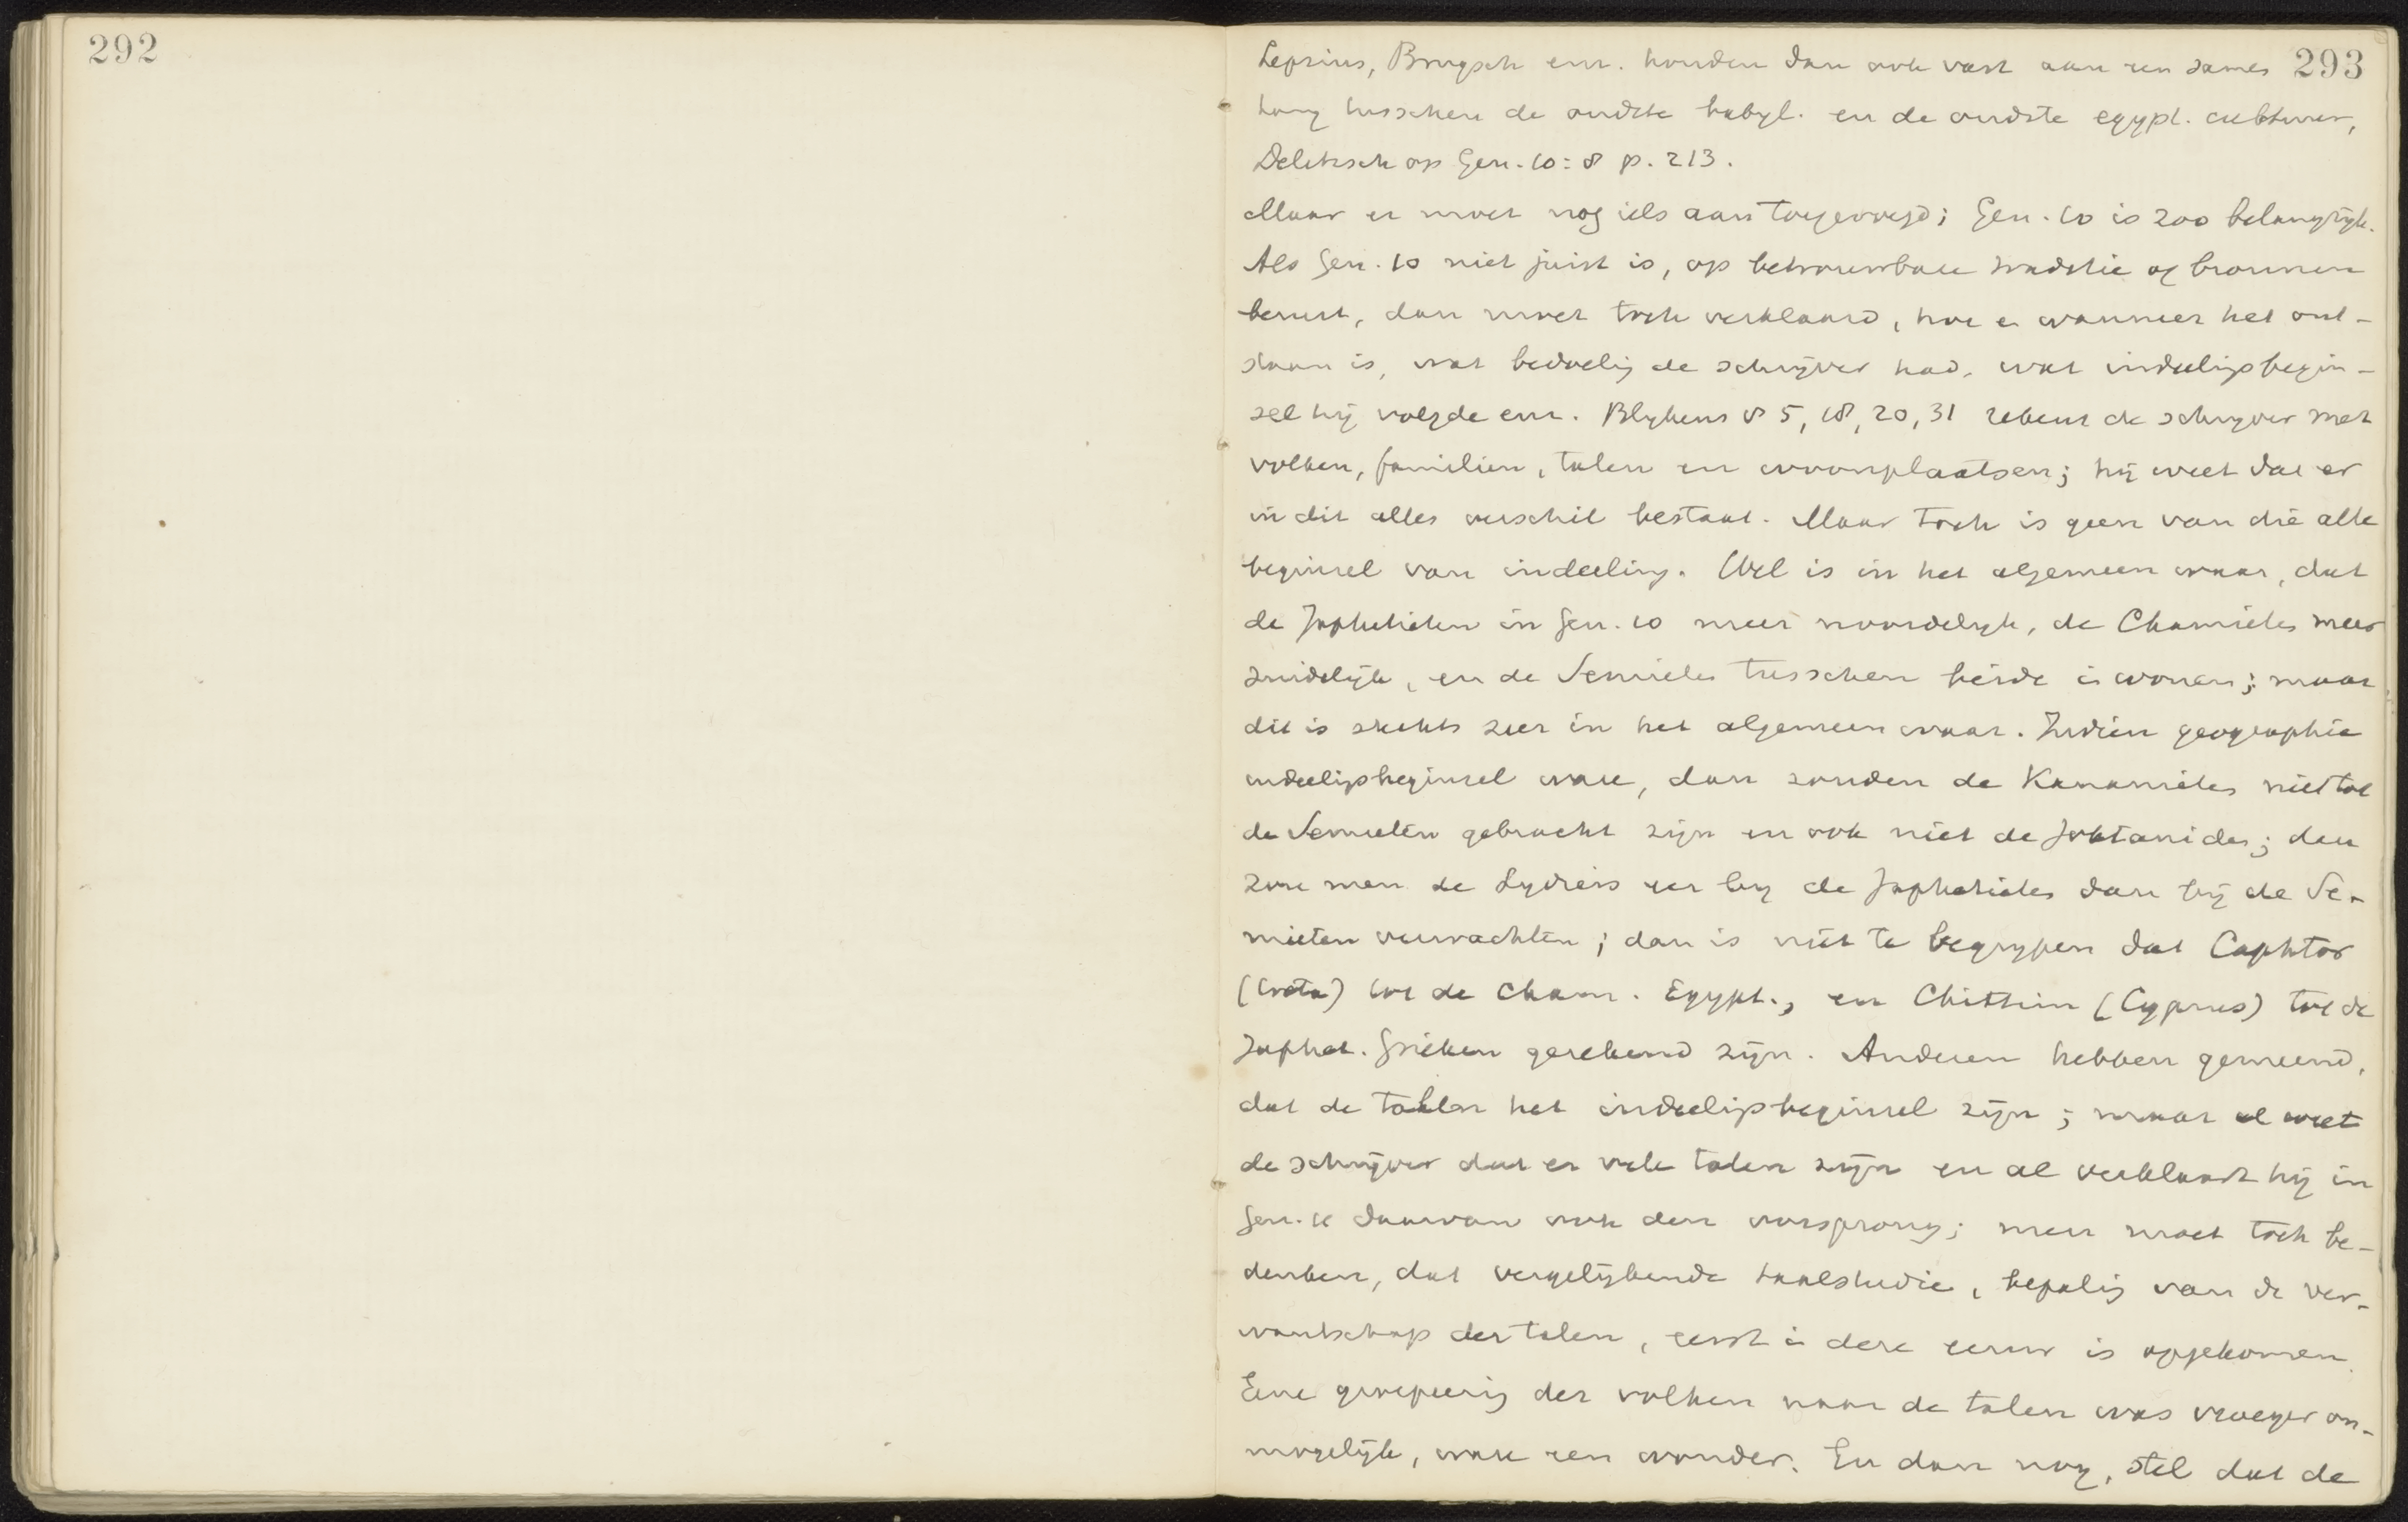 292
293
Lepsius, Brugsch enz. houden dan ook vast aan een samen
hang tusschen de oudste babyl. en de oudste egypt. cultuur,
Delitzsch op Gen. 10:8 p. 213.
Maar er moet nog iets aan toegevoegd; Gen. 10 is zoo belangrijk.
Als Gen. 10 niet juist is, op betrouwbare traditie of bronnen
berust, dan moet toch verklaard, hoe e wanneer het ont-
staan is, wat bedoelig de schrijver had, wat indeeligsbegin-
sel hij volgde enz. Blijkens vs 5, 18, 20, 31 rekent de schrijver met
volken, familien, talen en woonplaatsen; hij weet dat er
in dit alles verschil bestaat. Maar toch is geen van die alle
beginsel van indeeling. Wel is in het algemeen waar, dat
de Japhetieten in Gen. 10 meer noordelijk, de Chamietes meer
zuidelijk, en de Semietes tusschen beide i wonen; maar
dit is slechts zeer in het algemeen waar. Indien geographie
indeeligsbeginsel ware, dan zouden de Kanaanietes niet tot
de Semieten gebracht zijn en ook niet de Joktanides; dan
zou men de Lydiers eer bij de Japhetietes dan bij de Se-
mieten verwachten; dan is niet te begrijpen dat Caphtor
(Creta) tot de Cham. Egypt., en Chittim (Cyprus) tot de
Japhet. Grieken gerekend zijn. Anderen hebben gemeend,
dat de talen het indeeligsbeginsel zijn; maar al weet
de schrijver dat er vele talen zijn en al verklaart hij in
Gen. 11 daarvan ook den oorsprong; men moet toch be-
denken, dat vergelijkende taalstudie, bepalig van de ver-
wantschap der talen, eerst i deze eeuw is opgekomen.
Eene groepeerig der volken naar de talen was vroeger on-
mogelijk, ware een wonder. En dan nog, stel dat de